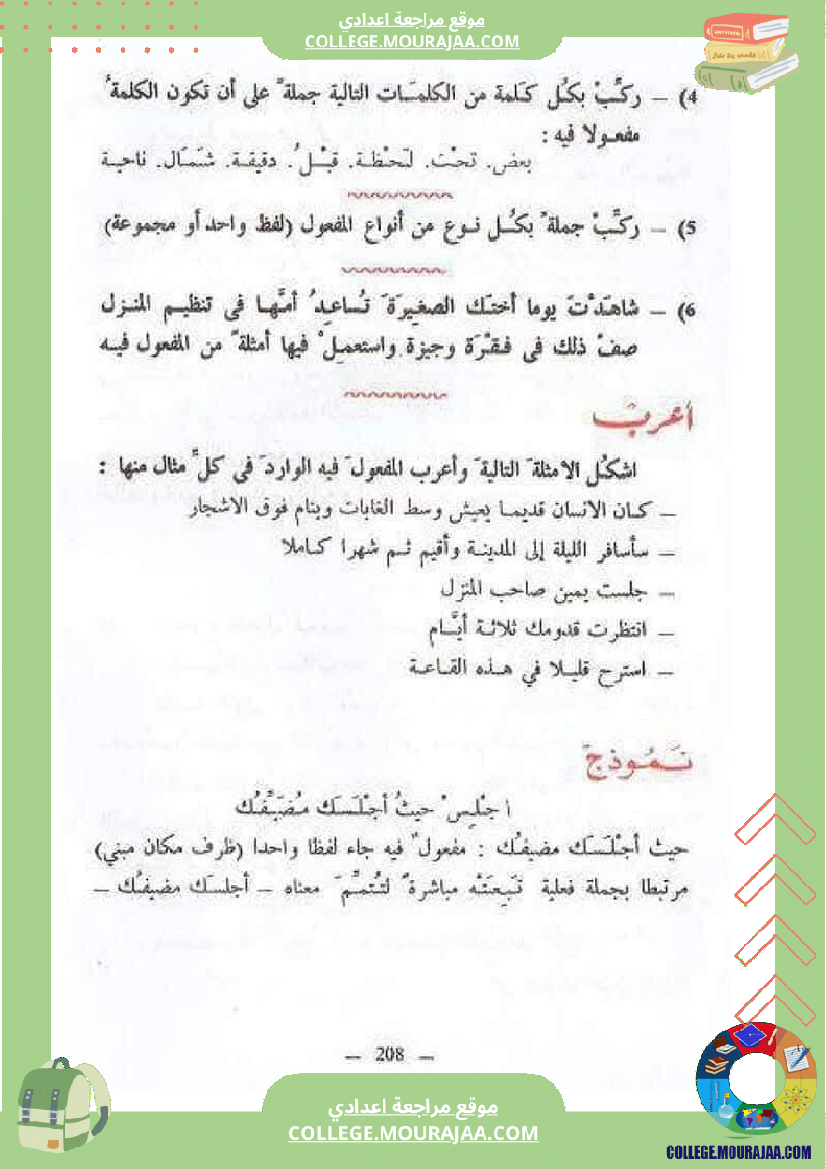 موقع مراجعة اعدادي
COLLEGE.MOURAJAA.COM
4) – ركِّبْ بكُل كَلمة من الكلمَات التالية جملةً على أن تكون الكلمةُ
مفعولا فيه :
بعض. تحْتَ. لَحْظة. قبْلُ. دقيقة. شمَال. ناحية
5) – ركِّبْ جملةً بكُل نوع من أنواع المفعول (لفظ واحد أو مجموعة)
6) – شاهَدْتَ يوما أختَك الصغيرَةَ تُساعِدُ أمَّها فى تنظيم المنزل
صفْ ذلك فى فقْرَة وجيزة واستعملْ فيها أمثلةً من المفعول فيه
أعرب
اشكُل الامثلةَ التاليةَ وأعرب المفعولَ فيه الواردَ فى كلّ مثال منها :
– كان الانسان قديما يعيش وسط الغابات وينام فوق الاشجار
– سأسافر الليلة إلى المدينة وأقيم ثم شهرا كاملا
– جلست يمين صاحب المنزل
– انتظرت قدومك ثلاثة أيَّام
– استرح قليلا في هذه القاعة
نَمُوذج
اجْلِسْ حيثُ أجْلَسَك مُضَيِّفُك
حيث أجْلَسَك مضيفُك : مفعولٌ فيه جاء لفظا واحدا (ظرف مكان مبني)
مرتبطا بجملة فعلية تَبِعَتْه مباشرةً لتُتمِّمَ معناه – أجلسَك مضيفُك –
– 208 –
موقع مراجعة اعدادي
COLLEGE.MOURAJAA.COM
COLLEGE.MOURAJAA.COM